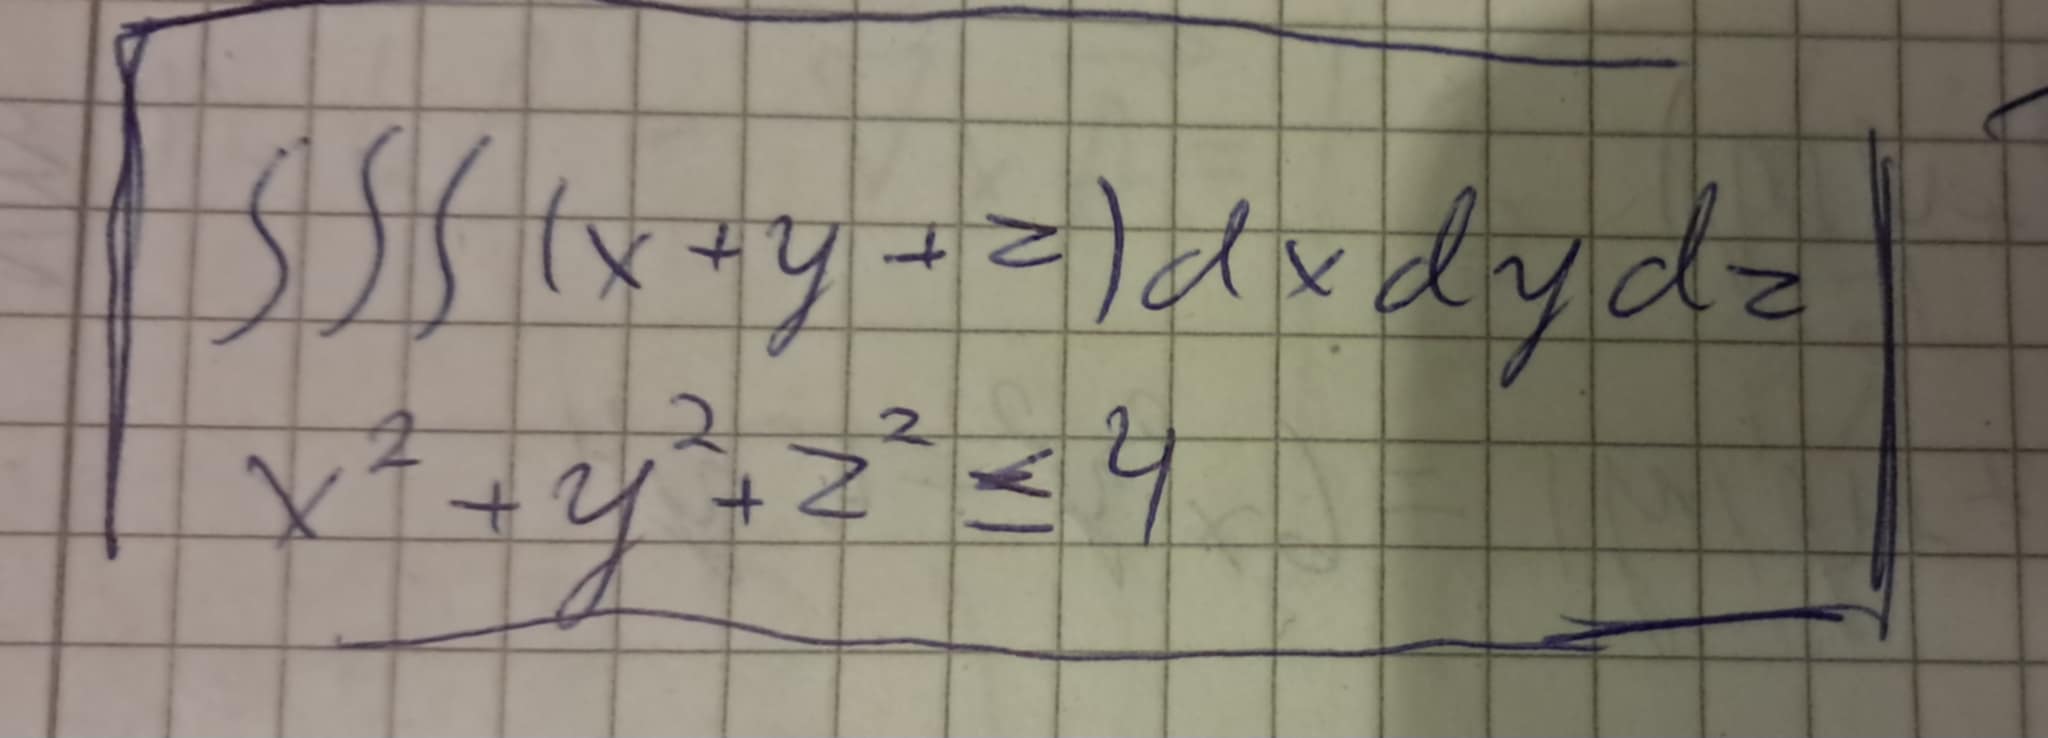 ∫∫∫ (x+y+z)dxdydz
x² + y² + z² ≤ 4